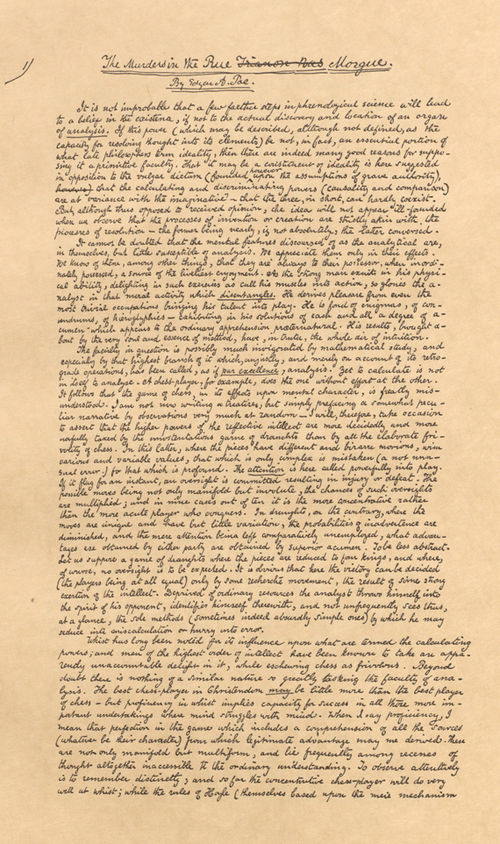 1)
The Murders in the Rue Trianon Bas Morgue.
By Edgar A. Poe.
It is not improbable that a few farther steps in phrenological science will lead
to a belief in the existence, if not to the actual discovery and location of an organ
of analysis. If this power (which may be described, although not defined, as the
capacity for resolving thought into its elements) be not, in fact, an essential portion of
what late philosophers term ideality, then there are indeed many good reasons for suppo-
sing it a primitive faculty. That it may be a constituent of ideality is here suggested
in opposition to the vulgar dictum (founded, however, upon the assumptions of grave authority),
however, that the calculating and discriminating powers (causality and comparison)
are at variance with the imaginative — that the three, in short, can hardly coexist.
But, although thus opposed to received opinion, the idea will not appear ill-founded
when we observe that the processes of invention or creation are strictly akin with the
processes of resolution — the former being nearly, if not absolutely, the latter conversed.
It cannot be doubted that the mental features discoursed of as the analytical are,
in themselves, but little susceptible of analysis. We appreciate them only in their effects.
We know of them, among other things, that they are always to their possessor, when inordi-
nately possessed, a source of the liveliest enjoyment. As the strong man exults in his physi-
cal ability, delighting in such exercises as call his muscles into action, so glories the a-
nalyst in that moral activity which disentangles. He derives pleasure from even the
most trivial occupations bringing his talent into play. He is fond of enigmas, of con-
undrums, of hieroglyphics — exhibiting in his solutions of each and all a degree of a-
cumen which appears to the ordinary apprehension præternatural. His results, brought a-
bout by the very soul and essence of method, have, in truth, the whole air of intuition.
The faculty in question is possibly much invigorated by mathematical study, and
especially by that highest branch of it which, unjustly, and merely on account of its retro-
grade operations, has been called, as if par excellence, analysis. Yet to calculate is not
in itself to analyse. A chess-player, for example, does the one without effort at the other.
It follows that the game of chess, in its effects upon mental character, is greatly mis-
understood. I am not now writing a treatise, but simply prefacing a somewhat pecu-
liar narrative by observations very much at random — I will, therefore, take occasion
to assert that the higher powers of the reflective intellect are more decidedly and more
usefully taxed by the unostentatious game of draughts than by all the elaborate fri-
volity of chess. In this latter, where the pieces have different and bizarre motions, with
various and variable values, that which is only complex is mistaken (a not unu-
sual error) for that which is profound. The attention is here called powerfully into play.
If it flag for an instant, an oversight is committed resulting in injury or defeat. The
possible moves being not only manifold but involute, the chances of such oversights
are multiplied; and in nine cases out of ten it is the more concentrative rather
than the more acute player who conquers. In draughts, on the contrary, where the
moves are unique and have but little variation, the probabilities of inadvertence are
diminished, and the mere attention being left comparatively unemployed, what advan-
tages are obtained by either party are obtained by superior acumen. To be less abstract.
Let us suppose a game of draughts where the pieces are reduced to four kings, and where,
of course, no oversight is to be expected. It is obvious that here the victory can be decided
(the players being at all equal) only by some recherché movement, the result of some strong
exertion of the intellect. Deprived of ordinary resources the analyst throws himself into
the spirit of his opponent, identifies himself therewith, and not unfrequently sees thus,
at a glance, the sole methods (sometimes indeed absurdly simple ones) by which he may
seduce into miscalculation or hurry into error.
Whist has long been noted for its influence upon what are termed the calculating
powers; and men of the highest order of intellect have been known to take an appa-
rently unaccountable delight in it, while eschewing chess as frivolous. Beyond
doubt there is nothing of a similar nature so greatly tasking the faculty of ana-
lysis. The best chess-player in Christendom may be little more than the best player
of chess — but proficiency in whist implies capacity for success in all those more im-
portant undertakings where mind struggles with mind. When I say proficiency, I
mean that perfection in the game which includes a comprehension of all the sources
(whatever be their character) from which legitimate advantage may be derived. These
are not only manifold but multiform, and lie frequently among recesses of
thought altogether inaccessible to the ordinary understanding. To observe attentively
is to remember distinctly; and so far the concentrative chess-player will do very
well at whist; while the rules of Hoyle (themselves based upon the mere mechanism